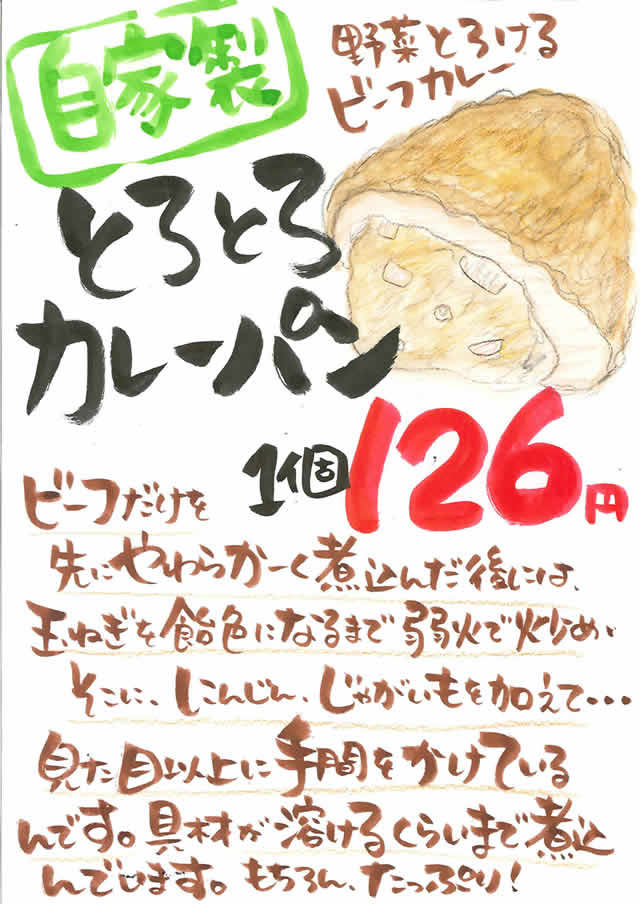 自家製
野菜とろける
ビーフカレー
とろとろ
カレーパン
1個126円
ビーフだけを
先にやわらかーく煮込んだ後には、
玉ねぎを飴色になるまで弱火で炒め、
そこに、にんじん、じゃがいもを加えて・・・
見た目以上に手間をかけている
んです。具材が溶けるくらいまで煮込
んでます。もちろん、たっぷり！